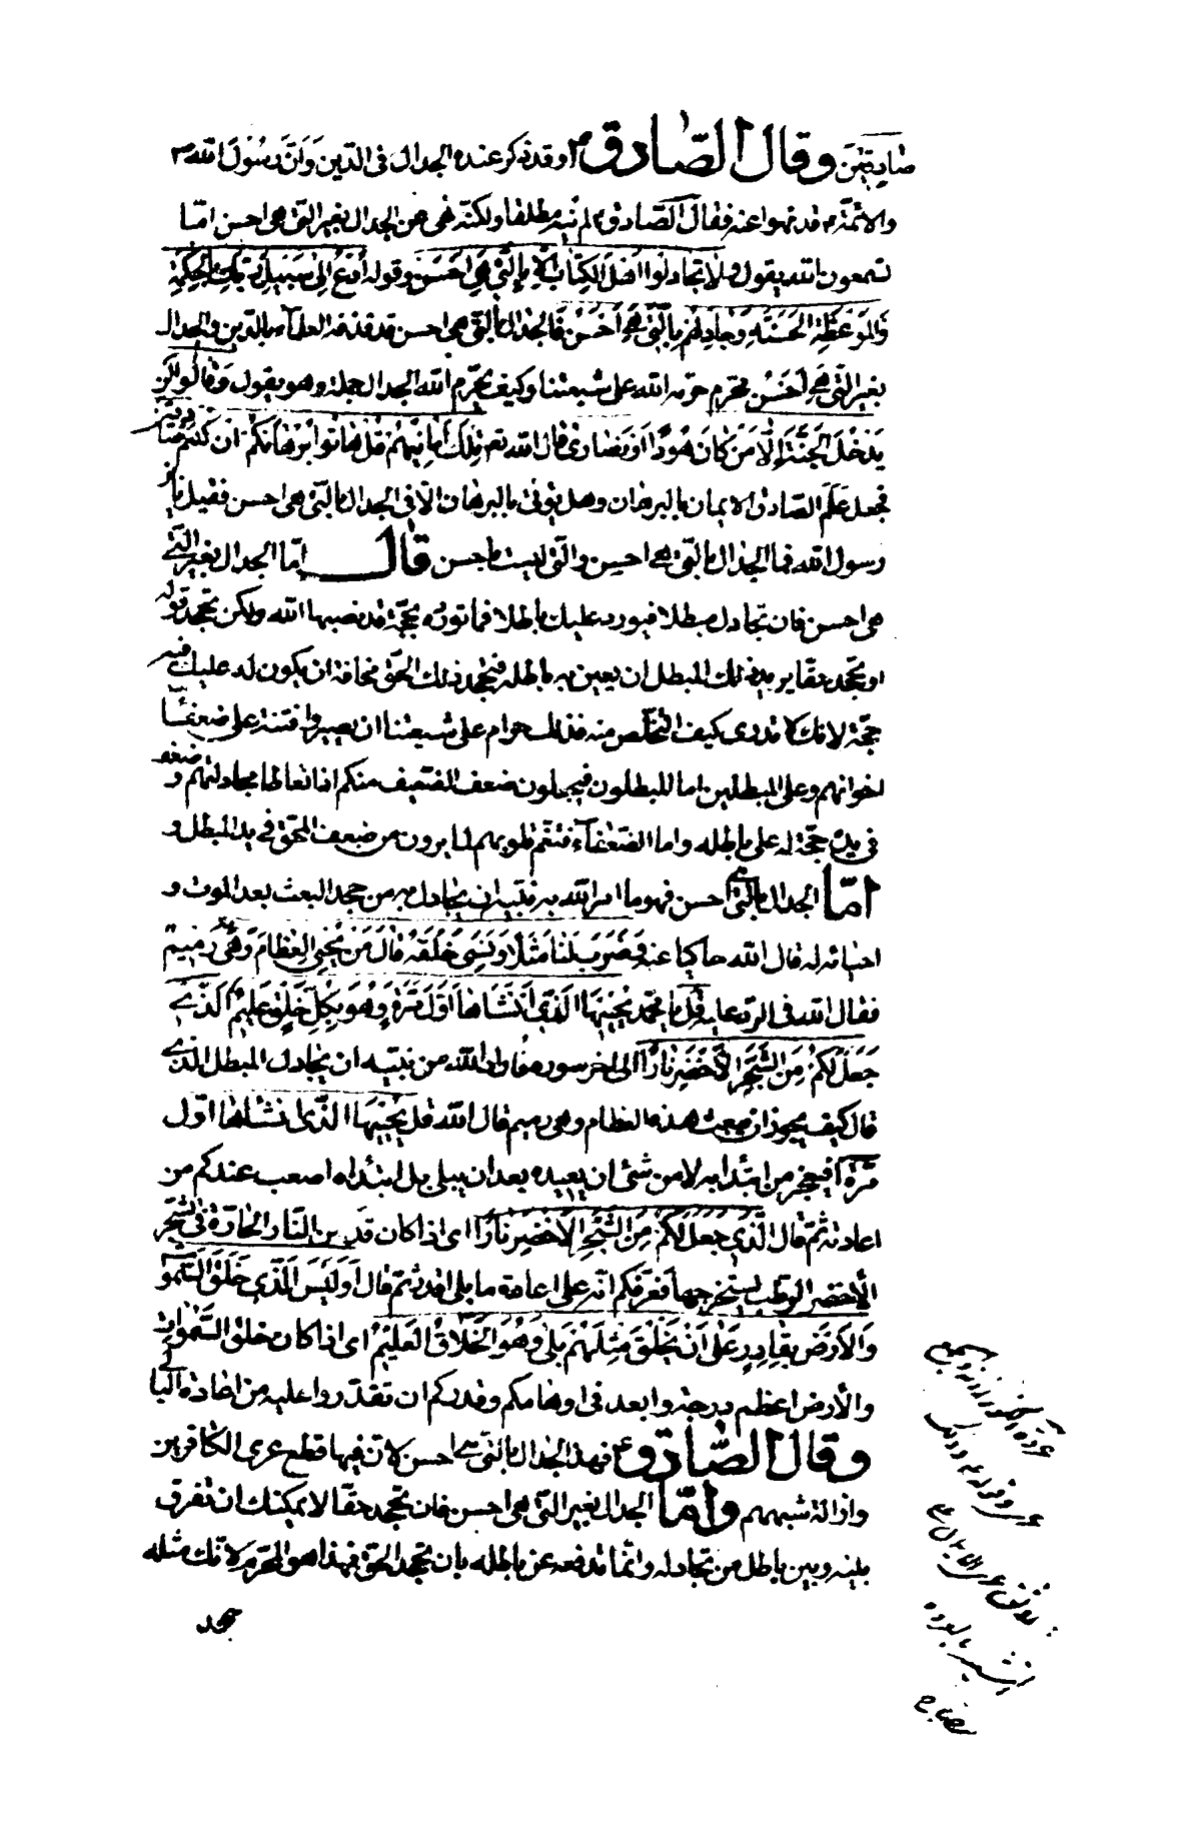 صَادِقِينَ وقال الصّادق ع وقد ذكر عنده الجدال فى الدّين وَانَّ رسُولَ الله ص
والائمّة ع قد نهوا عنه فقال الصّادق ع لم ينه مطلقا ولكنّه نهى عن الجدال بغير التى هى احسن امّا
تسمعون الله يقول وَلا تجادلوا اهْلَ الكِتَابِ الّا بِالَّتى هِىَ احْسَنُ وقوله ادْعُ اِلى سَبيلِ رَبّكَ بِالْحِكمَةِ
وَالمَوعِظَةِ الْحَسَنَةِ وَجَادِلْهُمْ بِالَّتى هِىَ اَحْسَنُ فالجدال بالتى هى احسن قد قرنه العلماء بالدّين والجدال
بغير الّتى هِىَ اَحْسَنُ محرّم حرّمه الله على شيعتنا وكيف يحرّم الله الجدال جملة وهو يقول وَقالُوا لَنْ
يَدْخُلَ الْجَنَّةَ اِلّا مَنْ كانَ هُودًا اَوْ نَصَارى قال الله تعالى تِلْكَ اَمَانِيُّهُمْ قُلْ هَاتُوا بُرْهَانَكُمْ ان كُنْتُمْ صَادِقينَ
فجعل علم الصّادق والايمان بالبرهان وهل يؤتى بالبرهان الّا فى الجدال بالتى هى احسن فقيل يابن
رسول الله فما الجدال بالتى هى احسن والّتى ليست باحسن قال امّا الجدال بغير الّتى
هى احسن فان تجادل مبطلا فيورد عليك باطلا فلا تردّه بحجّة قد نصبها الله ولكن تجحد قوله
او تجحد حقّا يريد ذلك المبطل ان يعين به باطله فتجحد ذلك الحقّ مخافة ان يكون له عليك فيه
حجّة لانك لا تدرى كيف التخلّص منه فذلك حرام على شيعتنا ان يصيروا فتنة على ضعفاء
اخوانهم وعلى المبطلين اما المبطلون فيجعلون ضعف الضّعيف منكم اذا تعاطا مجادلتهم وضعف
فى يده حجّة له على باطله واما الضّعفاء فتغمّ قلوبهم لما يرون من ضعف المحقّ فى يد المبطل و
امّا الجدال بالتى هى احسن فهو ما امر الله به نبيّه ان يجادل به من جحد البعث بعد الموت و
احيائه له فقال الله حاكيا عنه وَضَرَبَ لَنَا مَثَلًا وَنَسِىَ خَلْقَهُ قَالَ مَنْ يُحْيِى العِظَامَ وَهِىَ رَميمٌ
فقال الله فى الردّ عليه قُلْ يا محمّد يُحْيِيهَا الَّذِى اَنْشَأَهَا اَوَّلَ مَرَّةٍ وَهُوَ بِكُلِّ خَلْقٍ عَليمٌ الَّذى
جَعَلَ لَكُمْ مِنَ الشَّجَرِ الاَخْضَرِ نَارًا الى اخر سوره فاراد الله من نبيّه ان يجادل المبطل الّذى
قال كيف يجوز ان يبعث هذه العظام وهى رميم فقال الله قل يُحْيِيهَا الَّذى انشَاهَا اوّل
مَرَّةٍ افيعجز من ابتدا به لا من شئ ان يعيده بعد ان يبلى بل ابتداه اصعب عندكم من
اعادته ثمّ قال الَّذى جَعَلَ لَكُمْ مِنَ الشَّجَرِ الاَخْضَرِ نَارًا اى اذا كان قد كمن النّار الحارّة فى الشّجر
الاخضر الرطب يستخرجها فعرّفكم انّه على اعادة ما بلى اقدر ثمّ قال اَوَلَيْسَ الَّذى خَلَقَ السَّمَوَاتِ
وَالاَرْضَ بِقَادِرٍ عَلى اَنْ يَخْلُقَ مِثْلَهُمْ بَلى وَهُوَ الْخَلَّاقُ الْعَليمُ اى اذا كان خلق السّموات
والأرض اعظم درجة وابعد فى اوهامكم وقدركم ان تقدروا عليه من اعادة البالى
وقال الصّادق ع فهذا الجدال بالتى هى احسن لان فيها قطع عرى الكافرين
وازالة شبههم وامّا الجدال بغير التى هى احسن فان تجحد حقّا لا يمكنك ان تفرق
بينه وبين باطل من تجادله وانّما تدفعه عن باطله بان تجحد الحقّ فهذا هو المحرّم لانك مثله
جحد